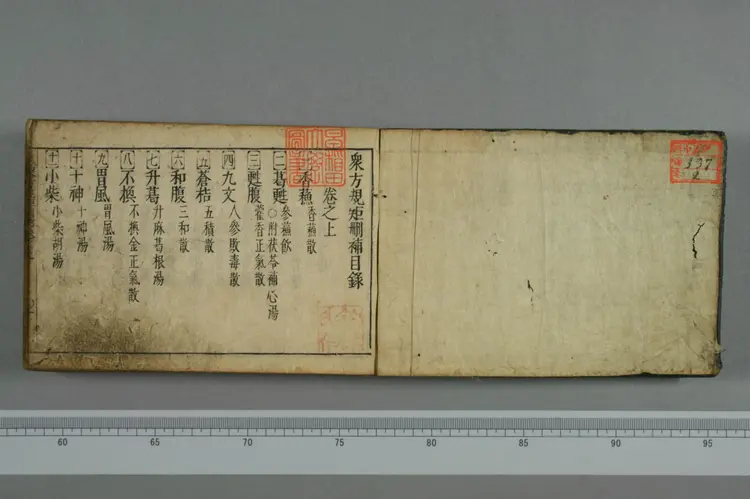 337
2
衆方規矩刪補目錄
卷之上
香蘓 香蘓散
二 葛甦 参蘓飲 ○附茯苓補心湯
三 甦腹 藿香正氣散
四 九文 人参敗毒散
五 蒼桔 五積散
六 和腹 三和散
七 升葛 升麻葛根湯
八 不換 不換金正氣散
九 胃風 胃風湯
十 十神 十神湯
十一 小柴 小柴胡湯
60 65 70 75 80 85 90 95